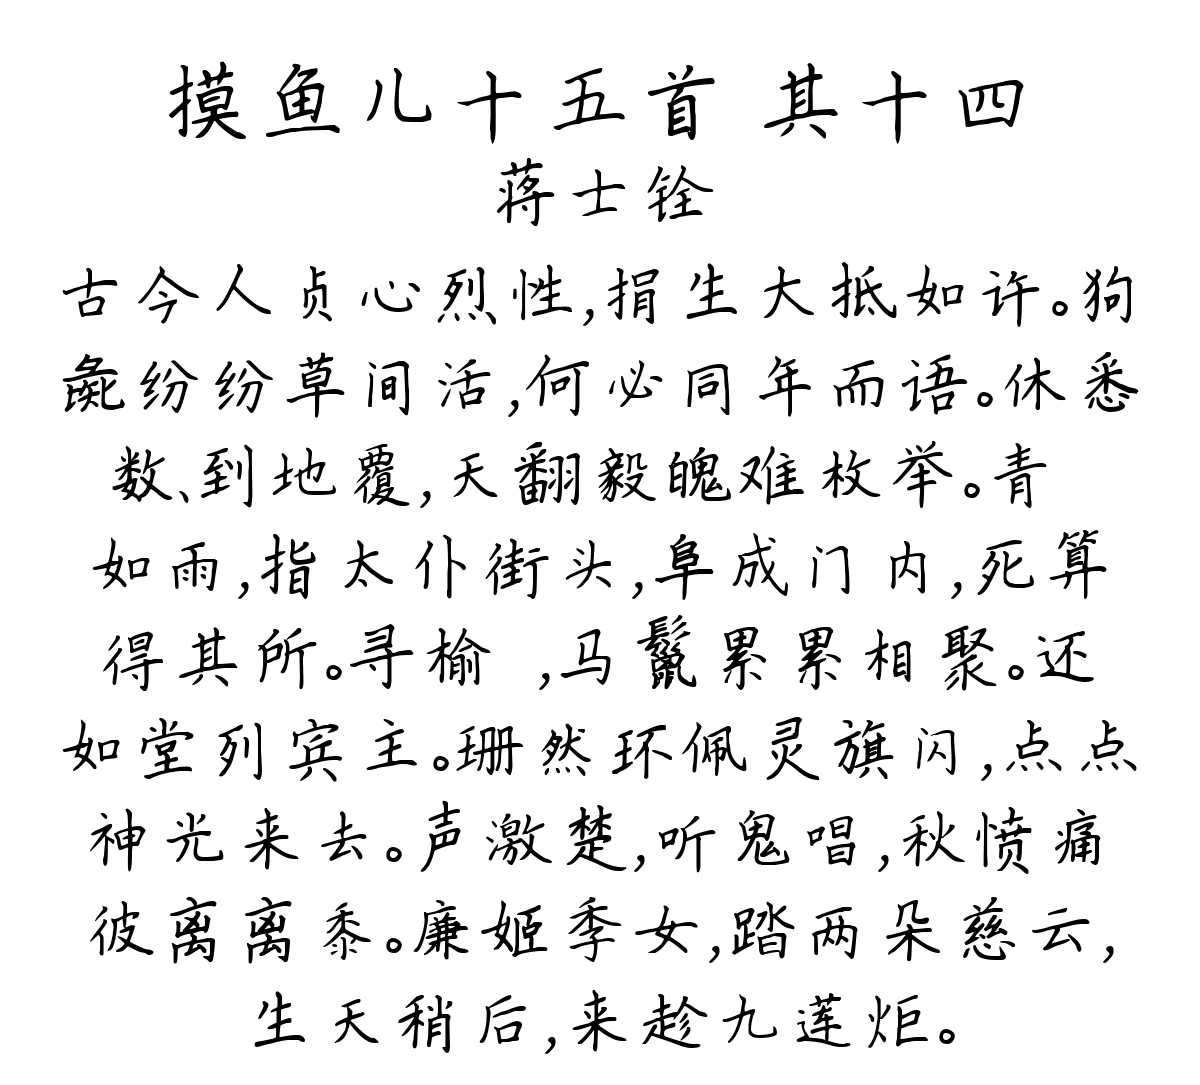 摸鱼儿十五首 其十四
蒋士铨
古今人贞心烈性,捐生大抵如许。狗
彘纷纷草间活,何必同年而语。休悉
数、到地覆,天翻毅魄难枚举。青
如雨,指太仆街头,阜成门内,死算
得其所。寻榆 ,马鬣累累相聚。还
如堂列宾主。珊然环佩灵旗闪,点点
神光来去。声激楚,听鬼唱,秋愤痛
彼离离黍。廉姬季女,踏两朵慈云,
生天稍后,来趁九莲炬。